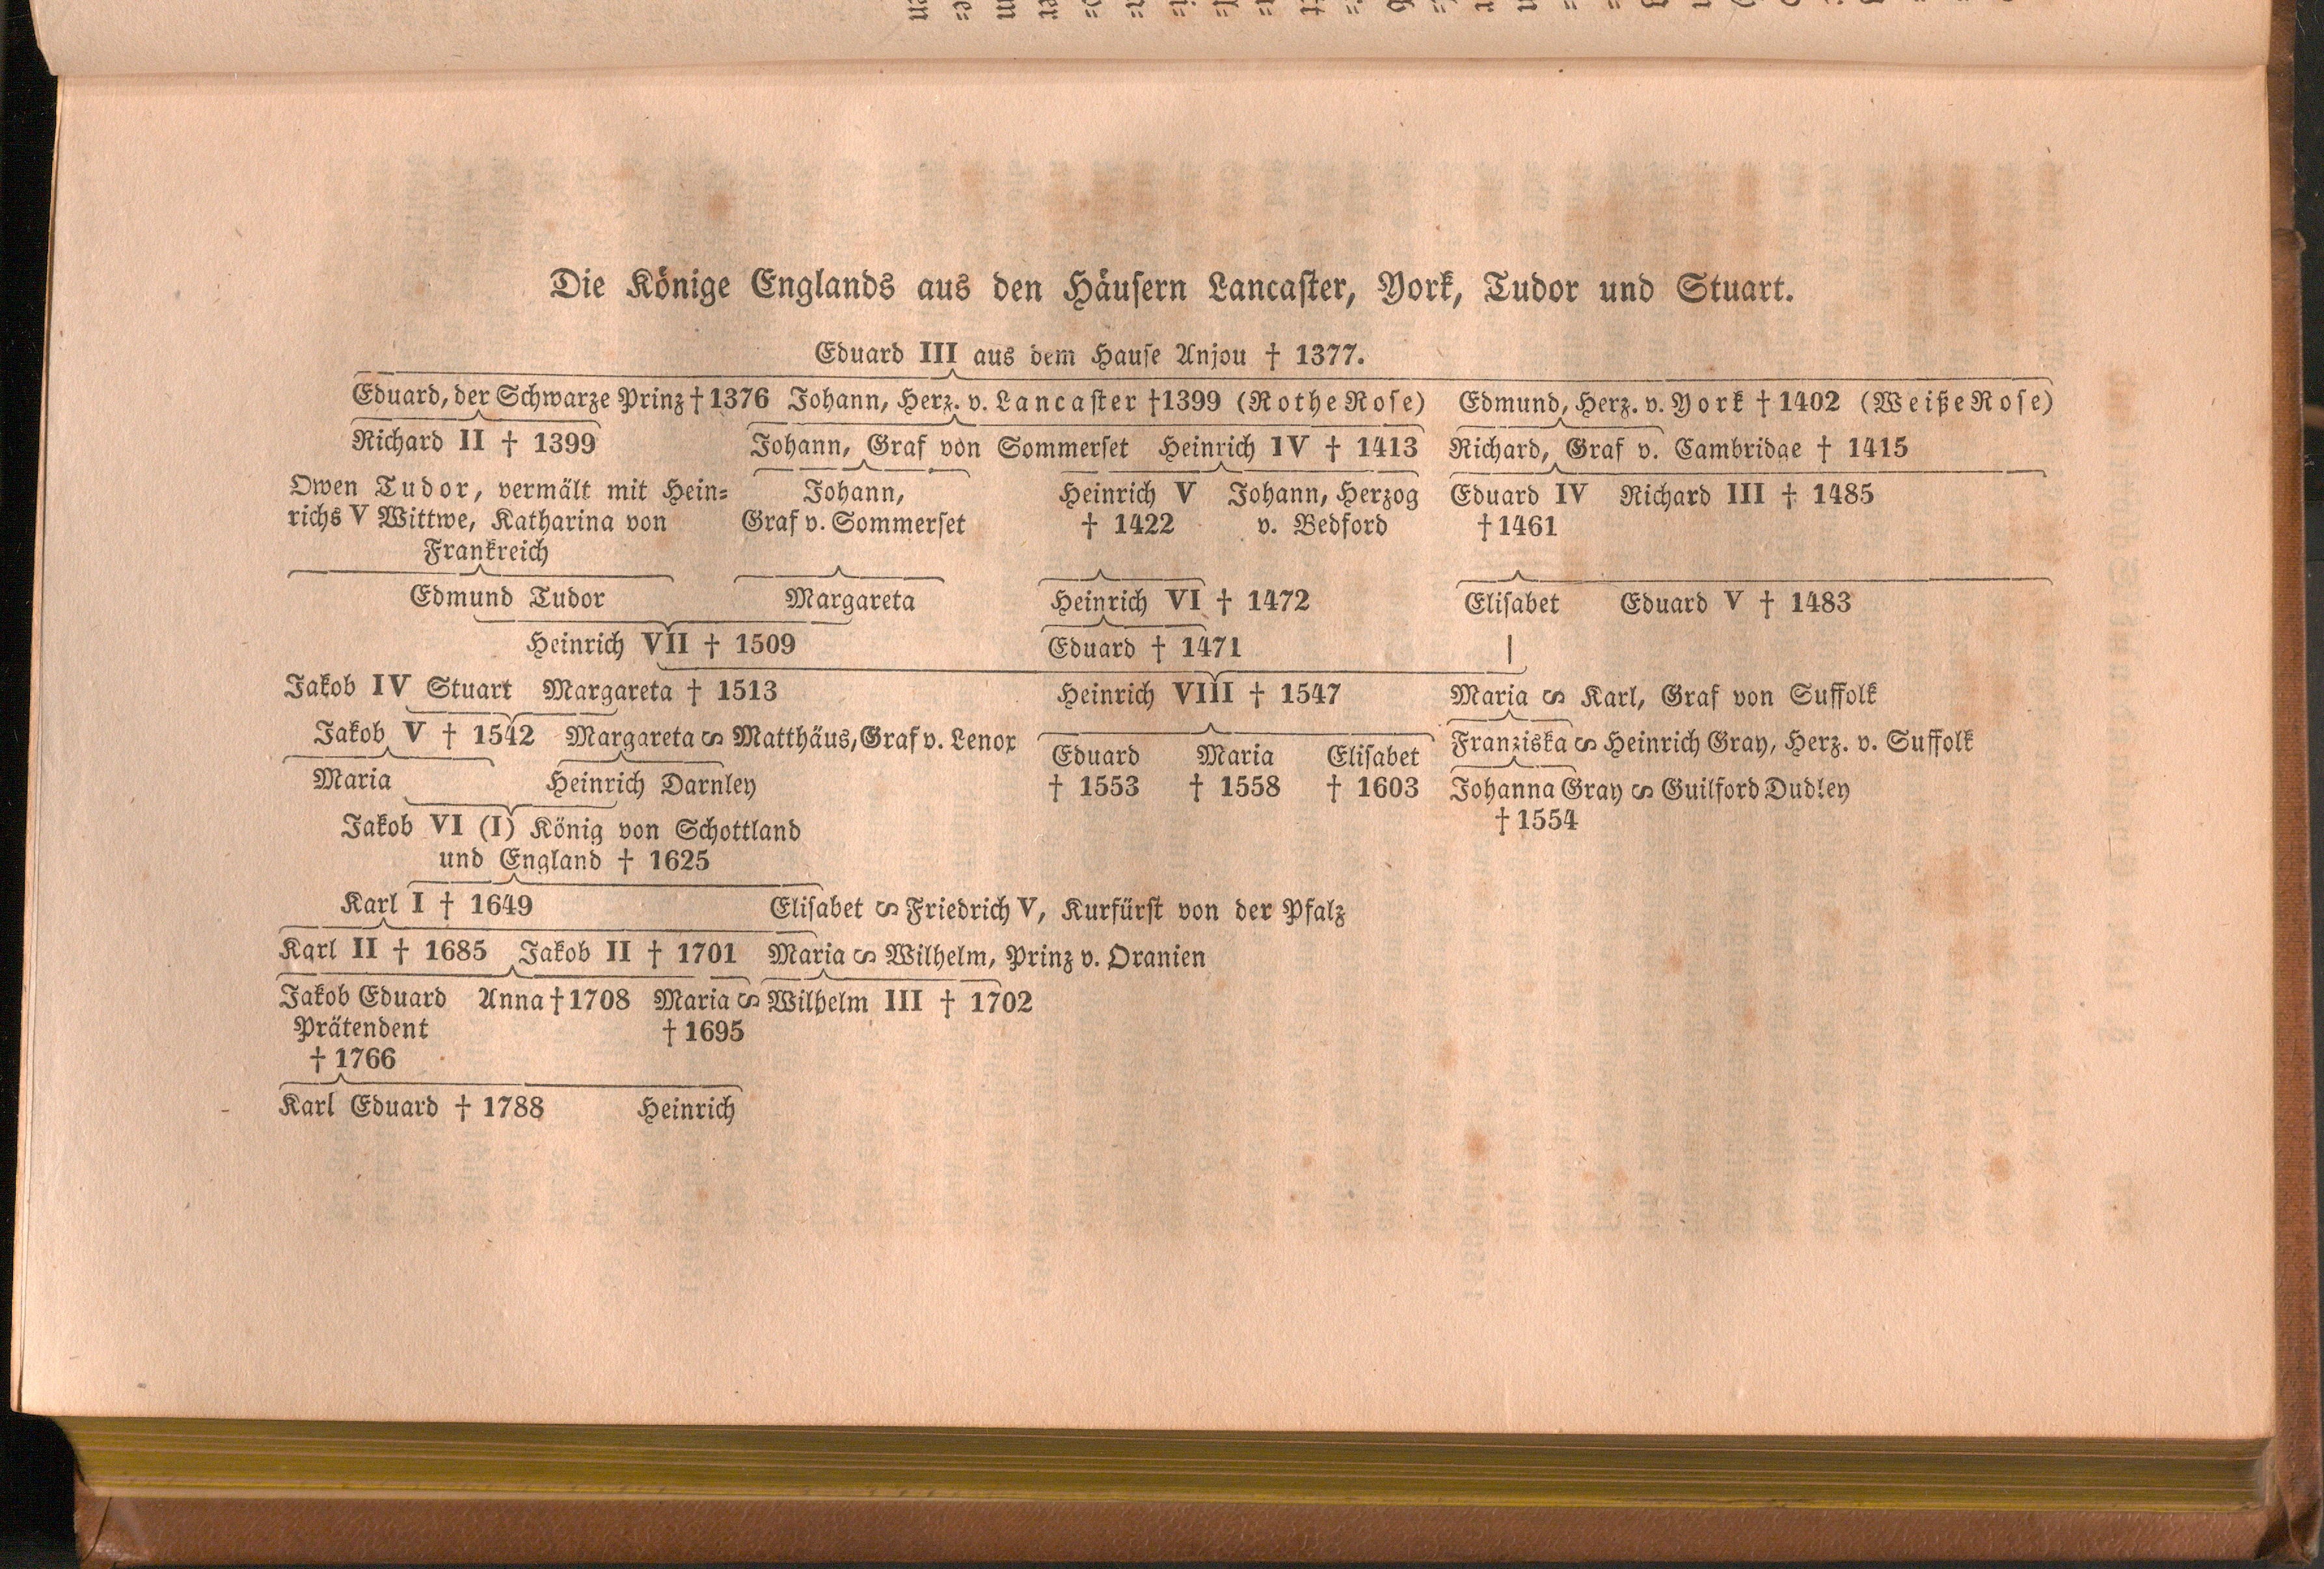 Die Könige Englands aus den Häusern Lancaster, York, Tudor und Stuart.
Eduard III aus dem Hause Anjou † 1377.
Eduard, der Schwarze Prinz † 1376 Johann, Herz. v. Lancaster † 1399 (Rothe Rose) Edmund, Herz. v. York † 1402 (Weiße Rose)
Richard II † 1399 Johann, Graf von Sommerset Heinrich IV † 1413 Richard, Graf v. Cambridge † 1415
Owen Tudor, vermält mit Hein- Johann, Heinrich V Johann, Herzog Eduard IV Richard III † 1485
richs V Wittwe, Katharina von Graf v. Sommerset † 1422 v. Bedford † 1461
Frankreich
Edmund Tudor Margareta Heinrich VI † 1472 Elisabet Eduard V † 1483
Heinrich VII † 1509 Eduard † 1471
Jakob IV Stuart Margareta † 1513 Heinrich VIII † 1547 Maria ᔕ Karl, Graf von Suffolk
Jakob V † 1542 Margareta ᔕ Matthäus, Graf v. Lenox Franziska ᔕ Heinrich Gray, Herz. v. Suffolk
Eduard Maria Elisabet
Maria Heinrich Darnley † 1553 † 1558 † 1603 Johanna Gray ᔕ Guilford Dudley
Jakob VI (I) König von Schottland † 1554
und England † 1625
Karl I † 1649 Elisabet ᔕ Friedrich V, Kurfürst von der Pfalz
Karl II † 1685 Jakob II † 1701 Maria ᔕ Wilhelm, Prinz v. Oranien
Jakob Eduard Anna † 1708 Maria ᔕ Wilhelm III † 1702
Prätendent † 1695
† 1766
Karl Eduard † 1788 Heinrich